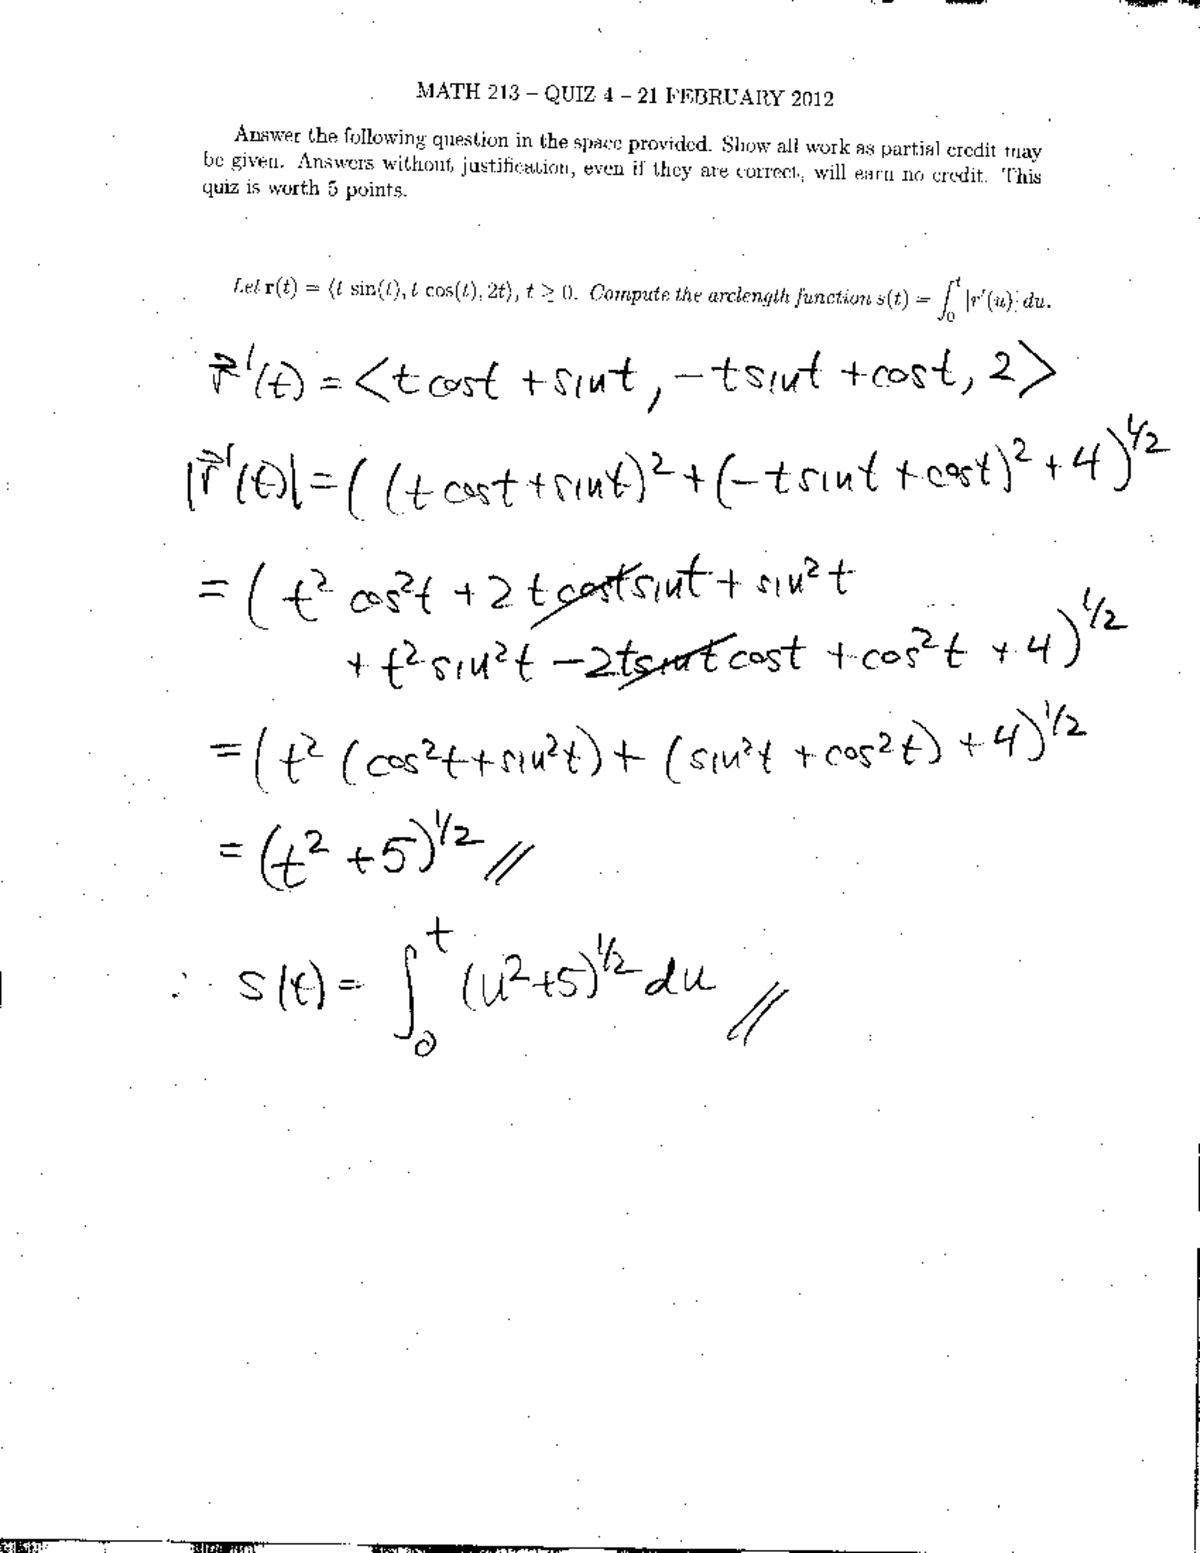 MATH 213 – QUIZ 4 – 21 FEBRUARY 2012
Answer the following question in the space provided. Show all work as partial credit may
be given. Answers without justification, even if they are correct, will earn no credit. This
quiz is worth 5 points.
Let r(t) = ⟨t sin(t), t cos(t), 2t⟩, t ≥ 0. Compute the arclength function s(t) = ∫₀ᵗ |r′(u)| du.
r⃗′(t) = <t cos t + sin t, −t sin t + cos t, 2>
|r⃗′(t)| = ( (t cos t + sin t)² + (−t sin t + cos t)² + 4)^1/2
= ( t² cos²t + 2 t cos t sin t + sin²t
+ t² sin²t − 2t sin t cos t + cos²t + 4)^1/2
= ( t² (cos²t + sin²t) + (sin²t + cos²t) + 4)^1/2
= (t² + 5)^1/2 //
∴ s(t) = ∫₀ᵗ (u²+5)^1/2 du //